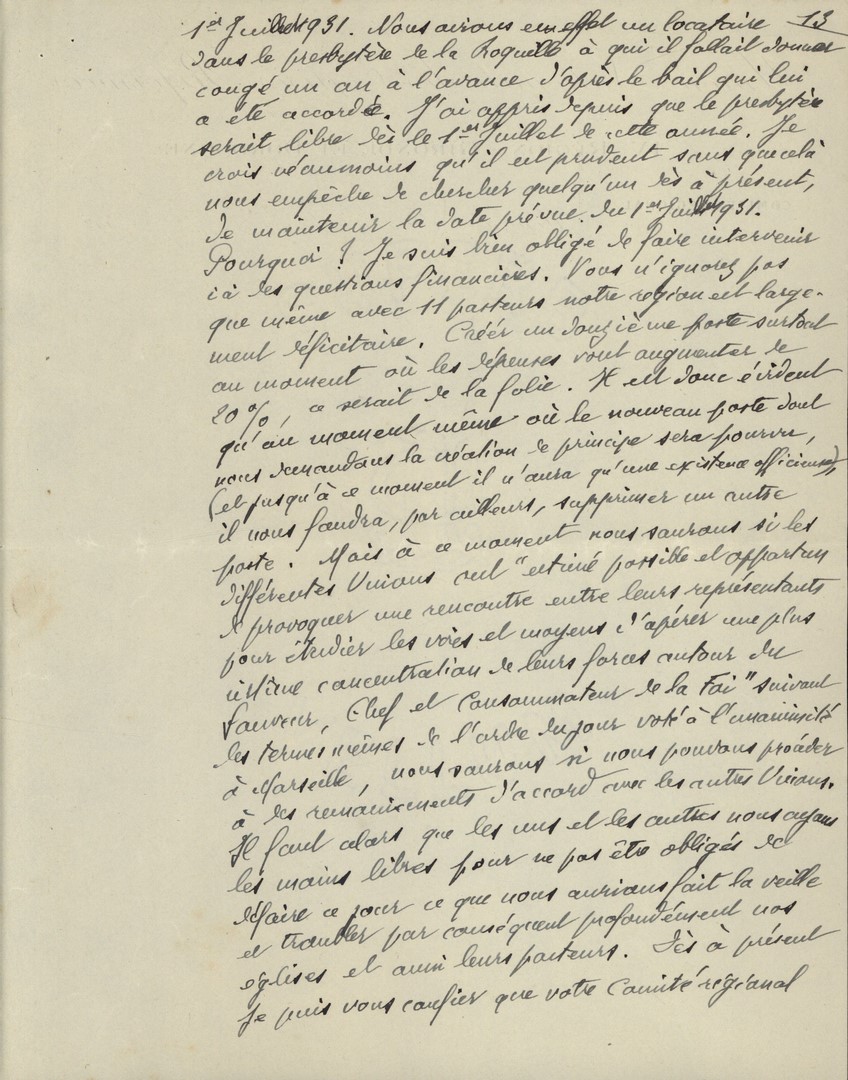 13
1er Juillet 1931. Nous avions en effet un locataire
dans le presbytère de la Roquille à qui il fallait donner
congé un an à l'avance d'après le bail qui lui
a été accordé. J'ai appris depuis que le presbytère
serait libre dès le 1er Juillet de cette année. Je
crois néanmoins qu'il est prudent sans que cela
nous empêche de chercher quelqu'un dès à présent,
de maintenir la date prévue du 1er Juillet 1931.
Pourquoi ? Je suis bien obligé de faire intervenir
ici des questions financières. Vous n'ignorez pas
que même avec 11 pasteurs notre région est large-
ment déficitaire. Créer un douzième poste surtout
au moment où les dépenses vont augmenter de
20%, ce serait de la folie. Il est donc évident
qu'au moment même où le nouveau poste dont
nous demandons la création de principe sera pourvu,
(et jusqu'à ce moment il n'aura qu'une existence officieuse),
il nous faudra, par ailleurs, supprimer un autre
poste. Mais à ce moment nous saurons si les
différentes Unions ont "estimé possible et opportun
de provoquer une rencontre entre leurs représentants
pour étudier les voies et moyens d'opérer une plus
intime concentration de leurs forces autour du
Sauveur, Chef et Consommateur de la Foi" suivant
les termes mêmes de l'ordre du jour voté à l'unanimité
à Marseille, nous saurons si nous pouvons procéder
à des remaniements d'accord avec les autres Unions.
Il faut alors que les uns et les autres nous ayons
les mains libres pour ne pas être obligés de
défaire ce jour ce que nous aurions fait la veille
et troubler par conséquent profondément nos
églises et aussi leurs pasteurs. Dès à présent
je puis vous confier que votre Comité régional